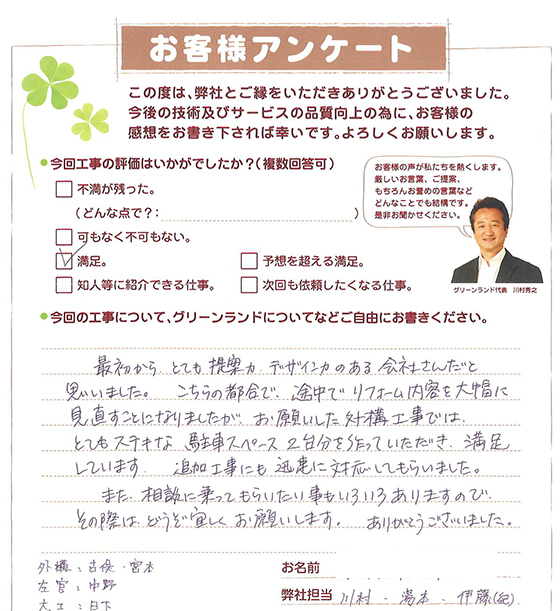 お客様アンケート
この度は、弊社とご縁をいただきありがとうございました。
今後の技術及びサービスの品質向上の為に、お客様の
感想をお書き下されば幸いです。よろしくお願いします。
今回工事の評価はいかがでしたか？（複数回答可）
不満が残った。
（どんな点で？： ）
可もなく不可もない。
満足。
予想を超える満足。
知人等に紹介できる仕事。
次回も依頼したくなる仕事。
お客様の声が私たちを熱くします。
厳しいお言葉、ご提案、
もちろんお誉めの言葉など
どんなことでも結構です。
是非お聞かせください。
グリーンランド代表 川村秀之
今回の工事について、グリーンランドについてなどご自由にお書きください。
最初から、とても提案力、デザイン力のある会社さんだと
思いました。こちらの都合で、途中でリフォーム内容を大幅に
見直すことになりましたが、お願いした外構工事では、
とてもステキな駐車スペース2台分を作っていただき、満足
しています。追加工事にも迅速に対応してもらいました。
また、相談に乗ってもらいたい事もいろいろありますので、
その際は、どうぞ宜しくお願いします。ありがとうございました。
外構：古俣・宮本
左官：中野
大工：日下
お名前
弊社担当 川村・湯本・伊藤(紀)